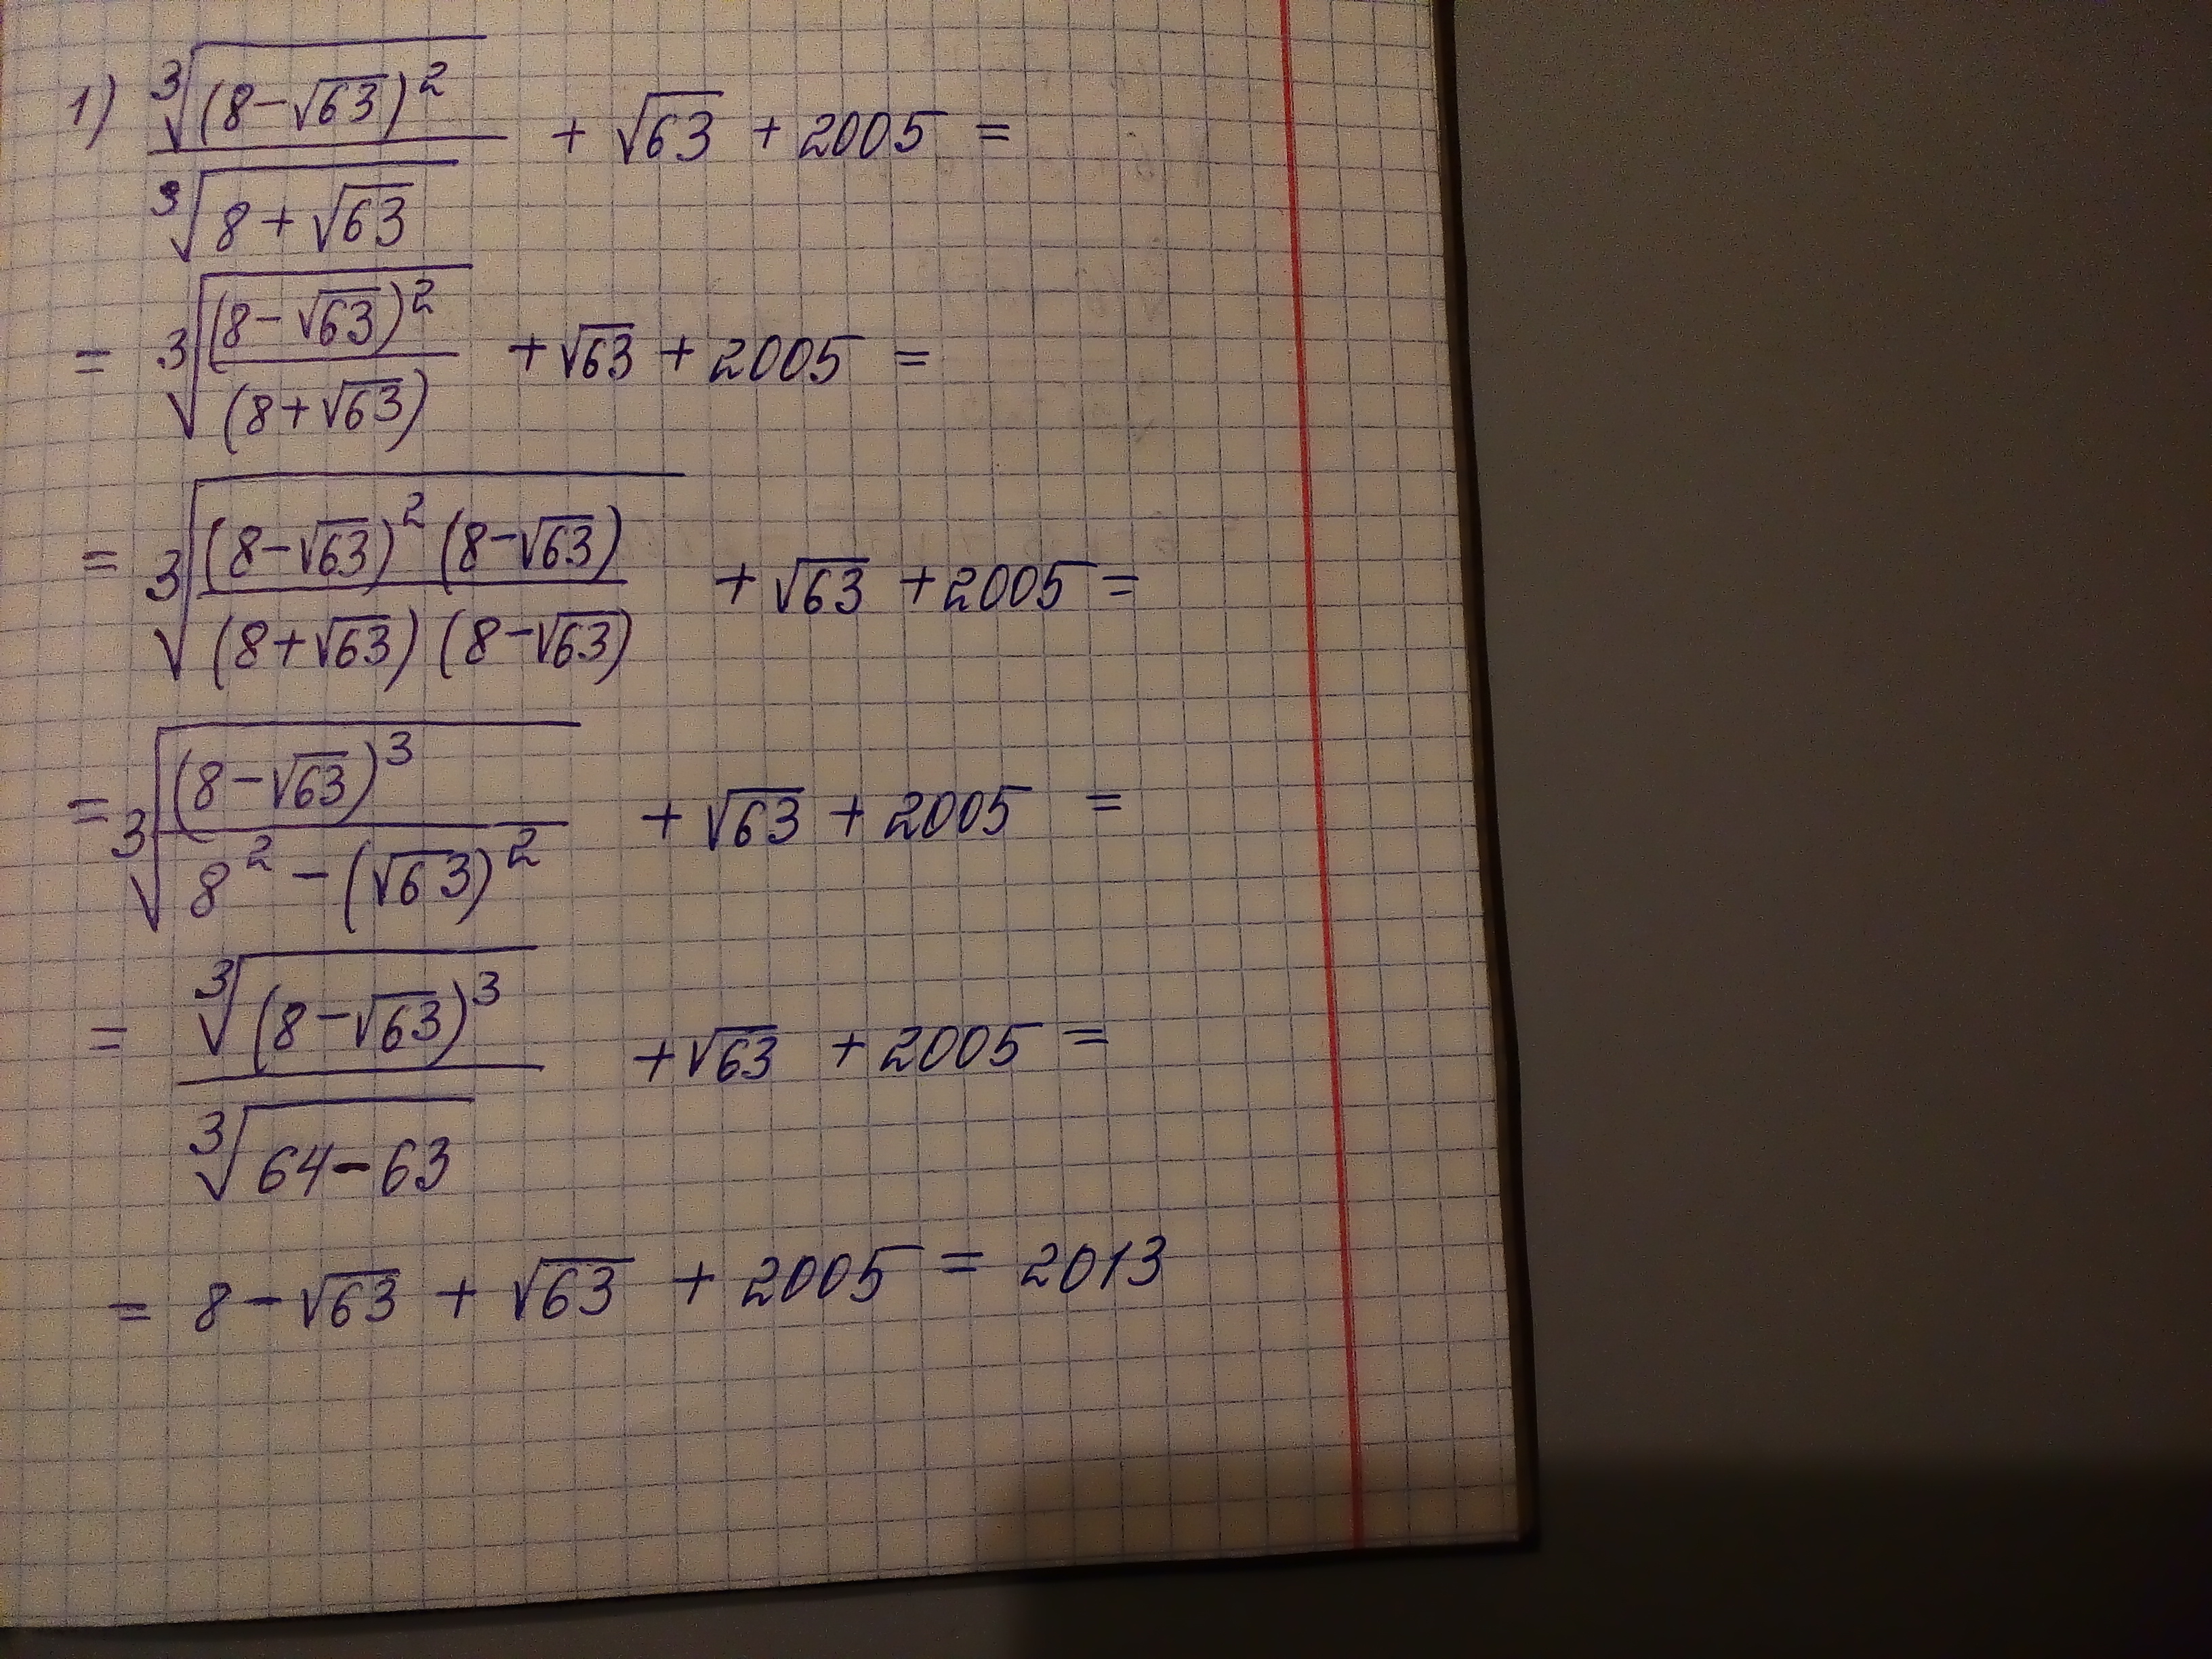 1) ∛((8-√63)²) / ∛(8+√63) + √63 + 2005 =
= ∛((8-√63)² / (8+√63)) + √63 + 2005 =
= ∛((8-√63)² (8-√63) / (8+√63) (8-√63)) + √63 + 2005 =
= ∛((8-√63)³ / 8² - (√63)²) + √63 + 2005 =
= ∛((8-√63)³) / ∛(64-63) + √63 + 2005 =
= 8 - √63 + √63 + 2005 = 2013